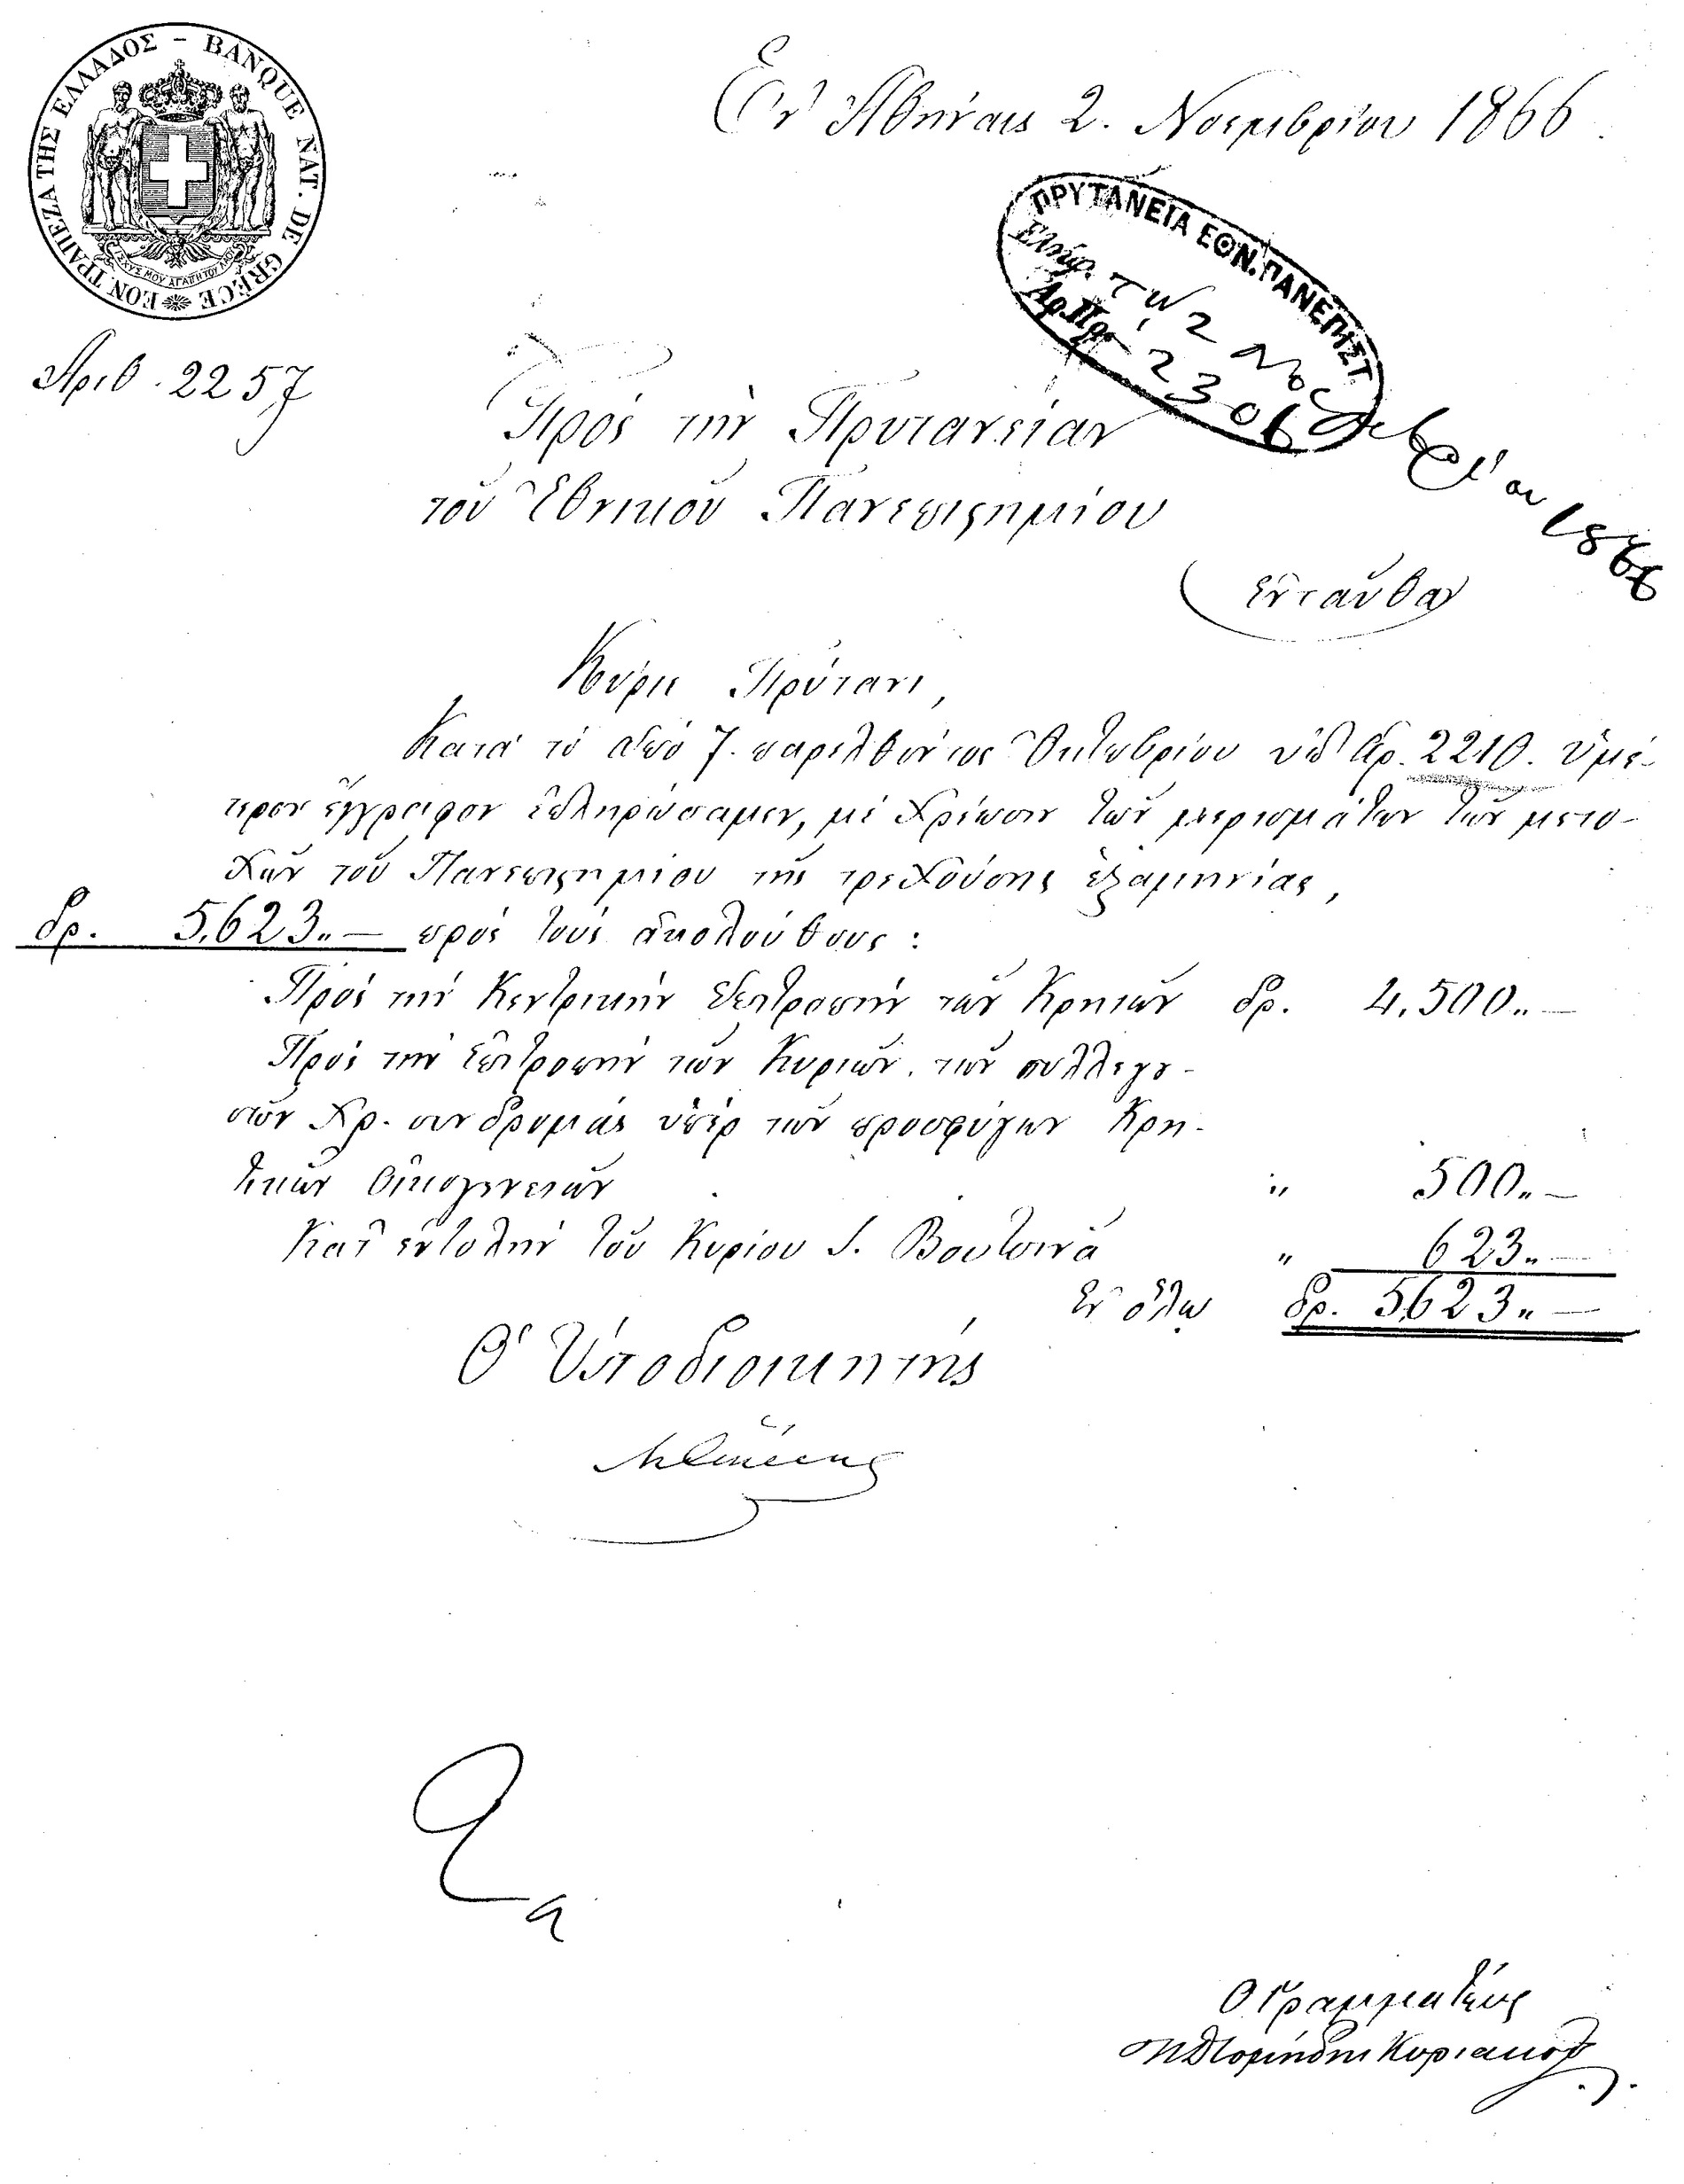 ΕΘΝ. ΤΡΑΠΕΖΑ ΤΗΣ ΕΛΛΑΔΟΣ - BANQUE NAT. DE GRÈCE
ΙΣΧΥΣ ΜΟΥ ΑΓΑΠΗ ΤΟΥ ΛΑΟΥ
Ἐν Ἀθήναις 2. Νοεμβρίου 1866
ΠΡΥΤΑΝΕΙΑ ΕΘΝ. ΠΑΝΕΠΙΣΤ.
Ἐλήφ. τῇ 2 Νοεμβρίου 1866
Ἀρ. Πρ. 2306
Ἀριθ. 2257
Πρὸς τὴν Πρυτανείαν
τοῦ Ἐθνικοῦ Πανεπιςημίου
Ἐνταῦθα
Κύριε Πρύτανι,
Κατὰ τὸ ἀπὸ 7. παρελθόντος Ὀκτωβρίου ὑπ' Ἀρ. 2210. ὑμέ-
τερον ἔγγραφον ἐπληρώσαμεν, μὲ χρέωσιν τῶν μερισμάτων τῶν μετο-
χῶν τοῦ Πανεπιςημίου τῆς τρεχούσης ἑξαμηνίας,
δρ. 5,623.,— πρὸς τοὺς ἀκολούθους:
Πρὸς τὴν Κεντρικὴν Ἐπιτροπὴν τῶν Κρητῶν δρ. 4,500.,—
Πρὸς τὴν Ἐπιτροπὴν τῶν Κυριῶν, τῶν συλλεγο-
σῶν χρ. συνδρομὰς ὑπὲρ τῶν προσφύγων Κρη-
τικῶν Οἰκογενειῶν „ 500.,—
Κατ' ἐντολὴν τοῦ Κυρίου Ι. Βουτσινᾶ „ 623.,—
Ἐν ὅλῳ δρ. 5623.,—
Ὁ Ὑποδιοικητὴς
Ὁ Γραμματεὺς
Διομήδης Κυριακός